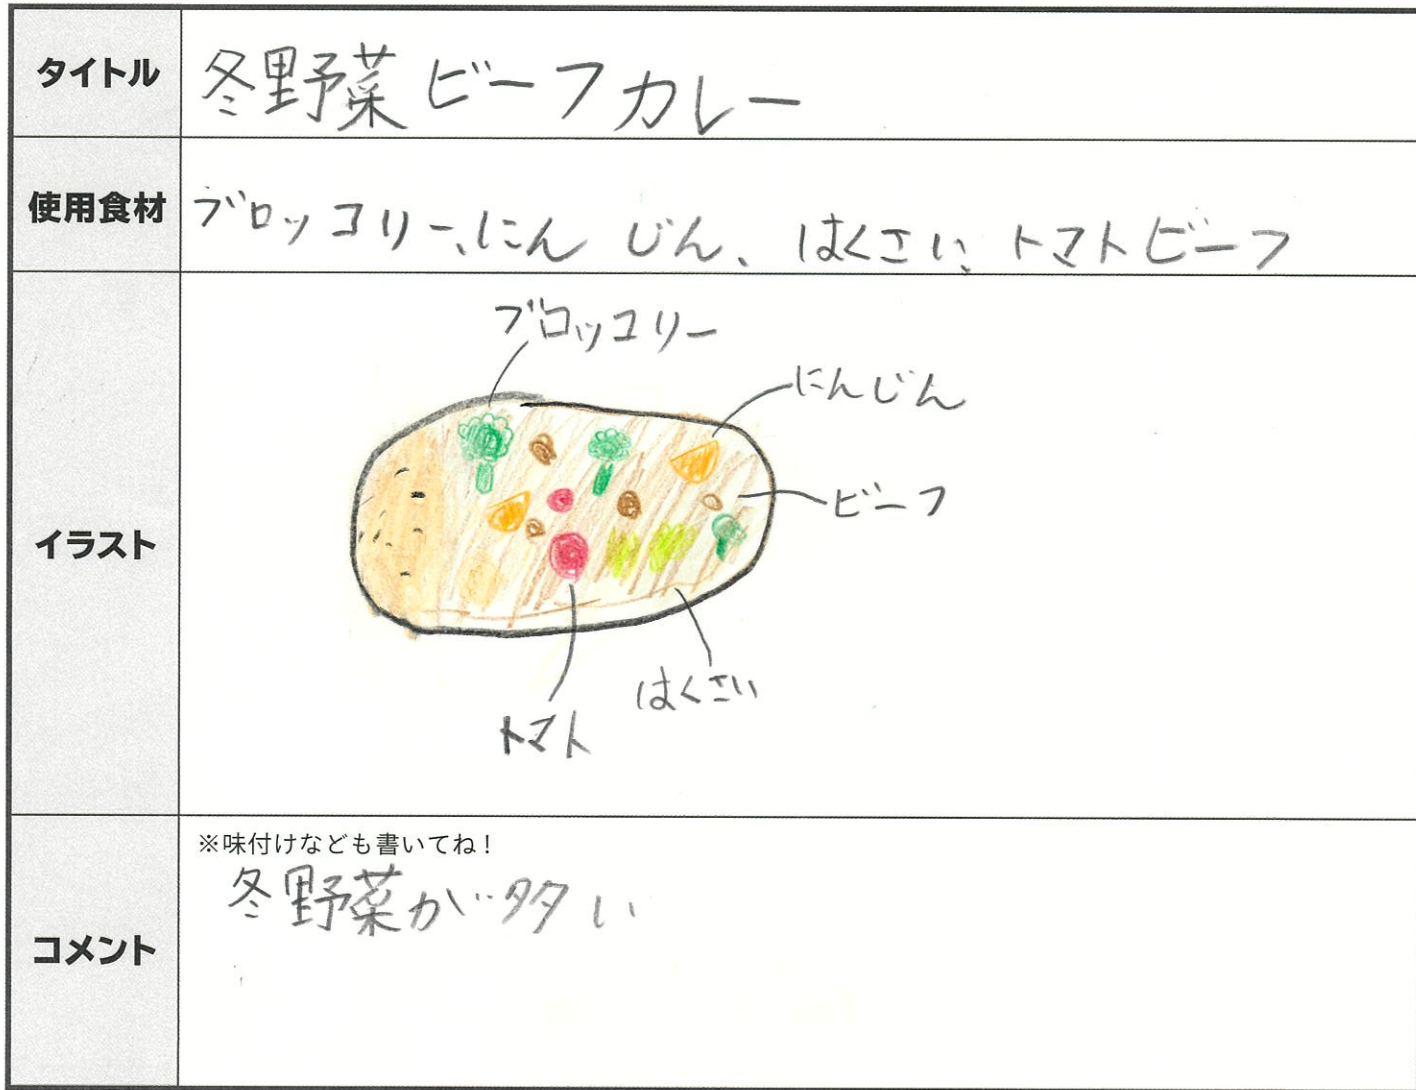 タイトル
冬野菜ビーフカレー
使用食材
ブロッコリー、にんじん、はくさい、トマトビーフ
イラスト
ブロッコリー
にんじん
ビーフ
はくさい
トマト
コメント
※味付けなども書いてね！
冬野菜が多い